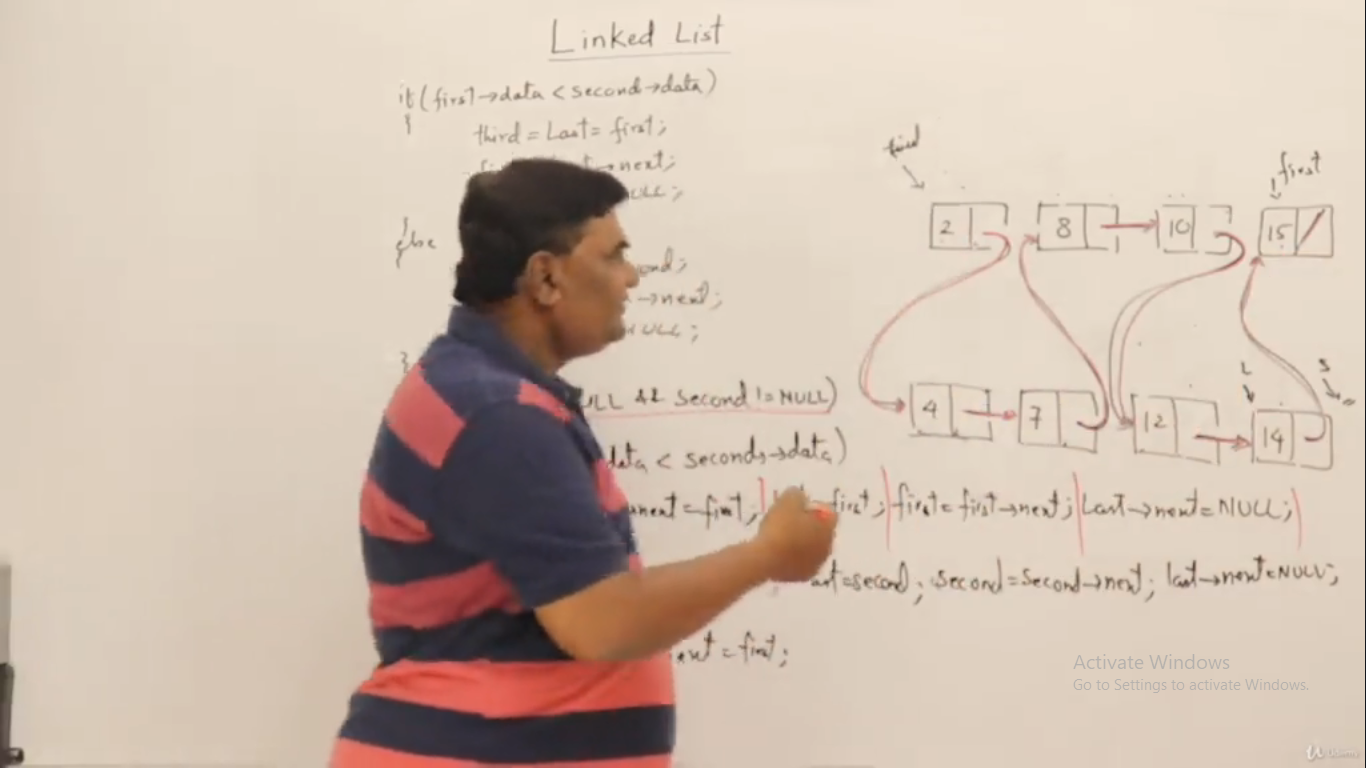 Linked List
if(first→data < second→data)
{
third = Last = first;
→next;
ULL;
}
else
{
ond;
→next;
ULL;
}
ULL && second != NULL)
data < second→data)
next = first; first; first = first→next; Last→next = NULL;
second; second = second→next; last→next = NULL;
next = first;
third
first
2 8 10 15
L S
4 7 12 14
Activate Windows
Go to Settings to activate Windows.
Udemy